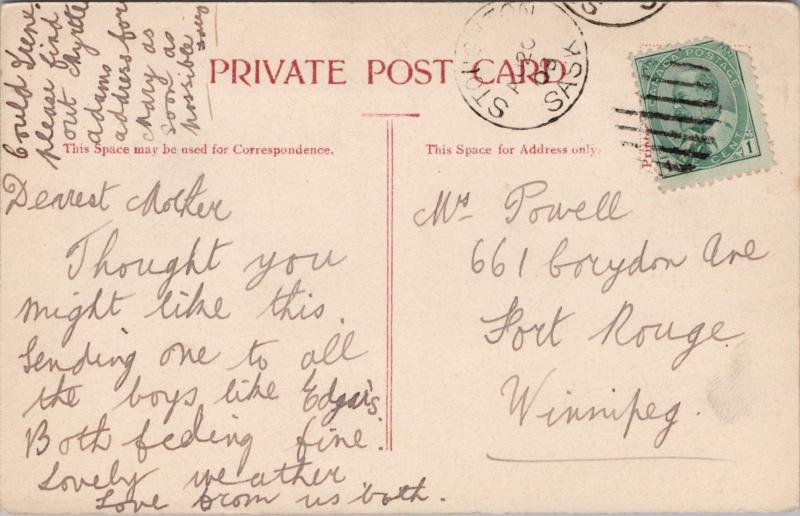 Could Irene
please find
out Myrtle
adams
address for
Mary as
soon as
possible
PRIVATE POST CARD
STRASSBURG
AU 20
09
SASK
CANADA POSTAGE
1 CENT 1
This Space may be used for Correspondence.
This Space for Address only.
Dearest Mother
Thought you
might like this.
Sending one to all
the boys like Edgar's.
Both feeling fine.
Lovely weather
Love from us both.
Mrs Powell
661 Corydon Ave
Fort Rouge
Winnipeg.